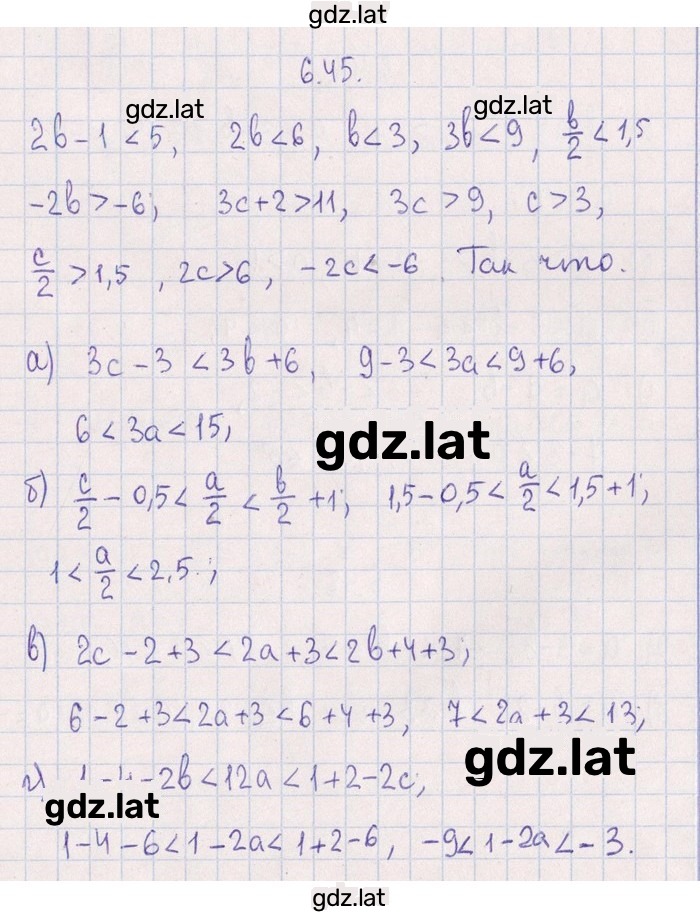 gdz.lat
6.45.
gdz.lat gdz.lat
2b-1<5, 2b<6, b<3, 3b<9, b/2<1,5
-2b>-6; 3c+2>11, 3c>9, c>3,
c/2>1,5, 2c>6, -2c<-6 Так что.
а) 3c-3<3b+6, 9-3<3a<9+6,
6<3a<15,
gdz.lat
б) c/2-0,5<a/2<b/2+1; 1,5-0,5<a/2<1,5+1;
1<a/2<2,5;
в) 2c-2+3<2a+3<2b+4+3;
6-2+3<2a+3<6+4+3, 7<2a+3<13;
gdz.lat
г) 1-4-2b<12a<1+2-2c;
gdz.lat
1-4-6<1-2a<1+2-6, -9<1-2a<-3.
gdz.lat